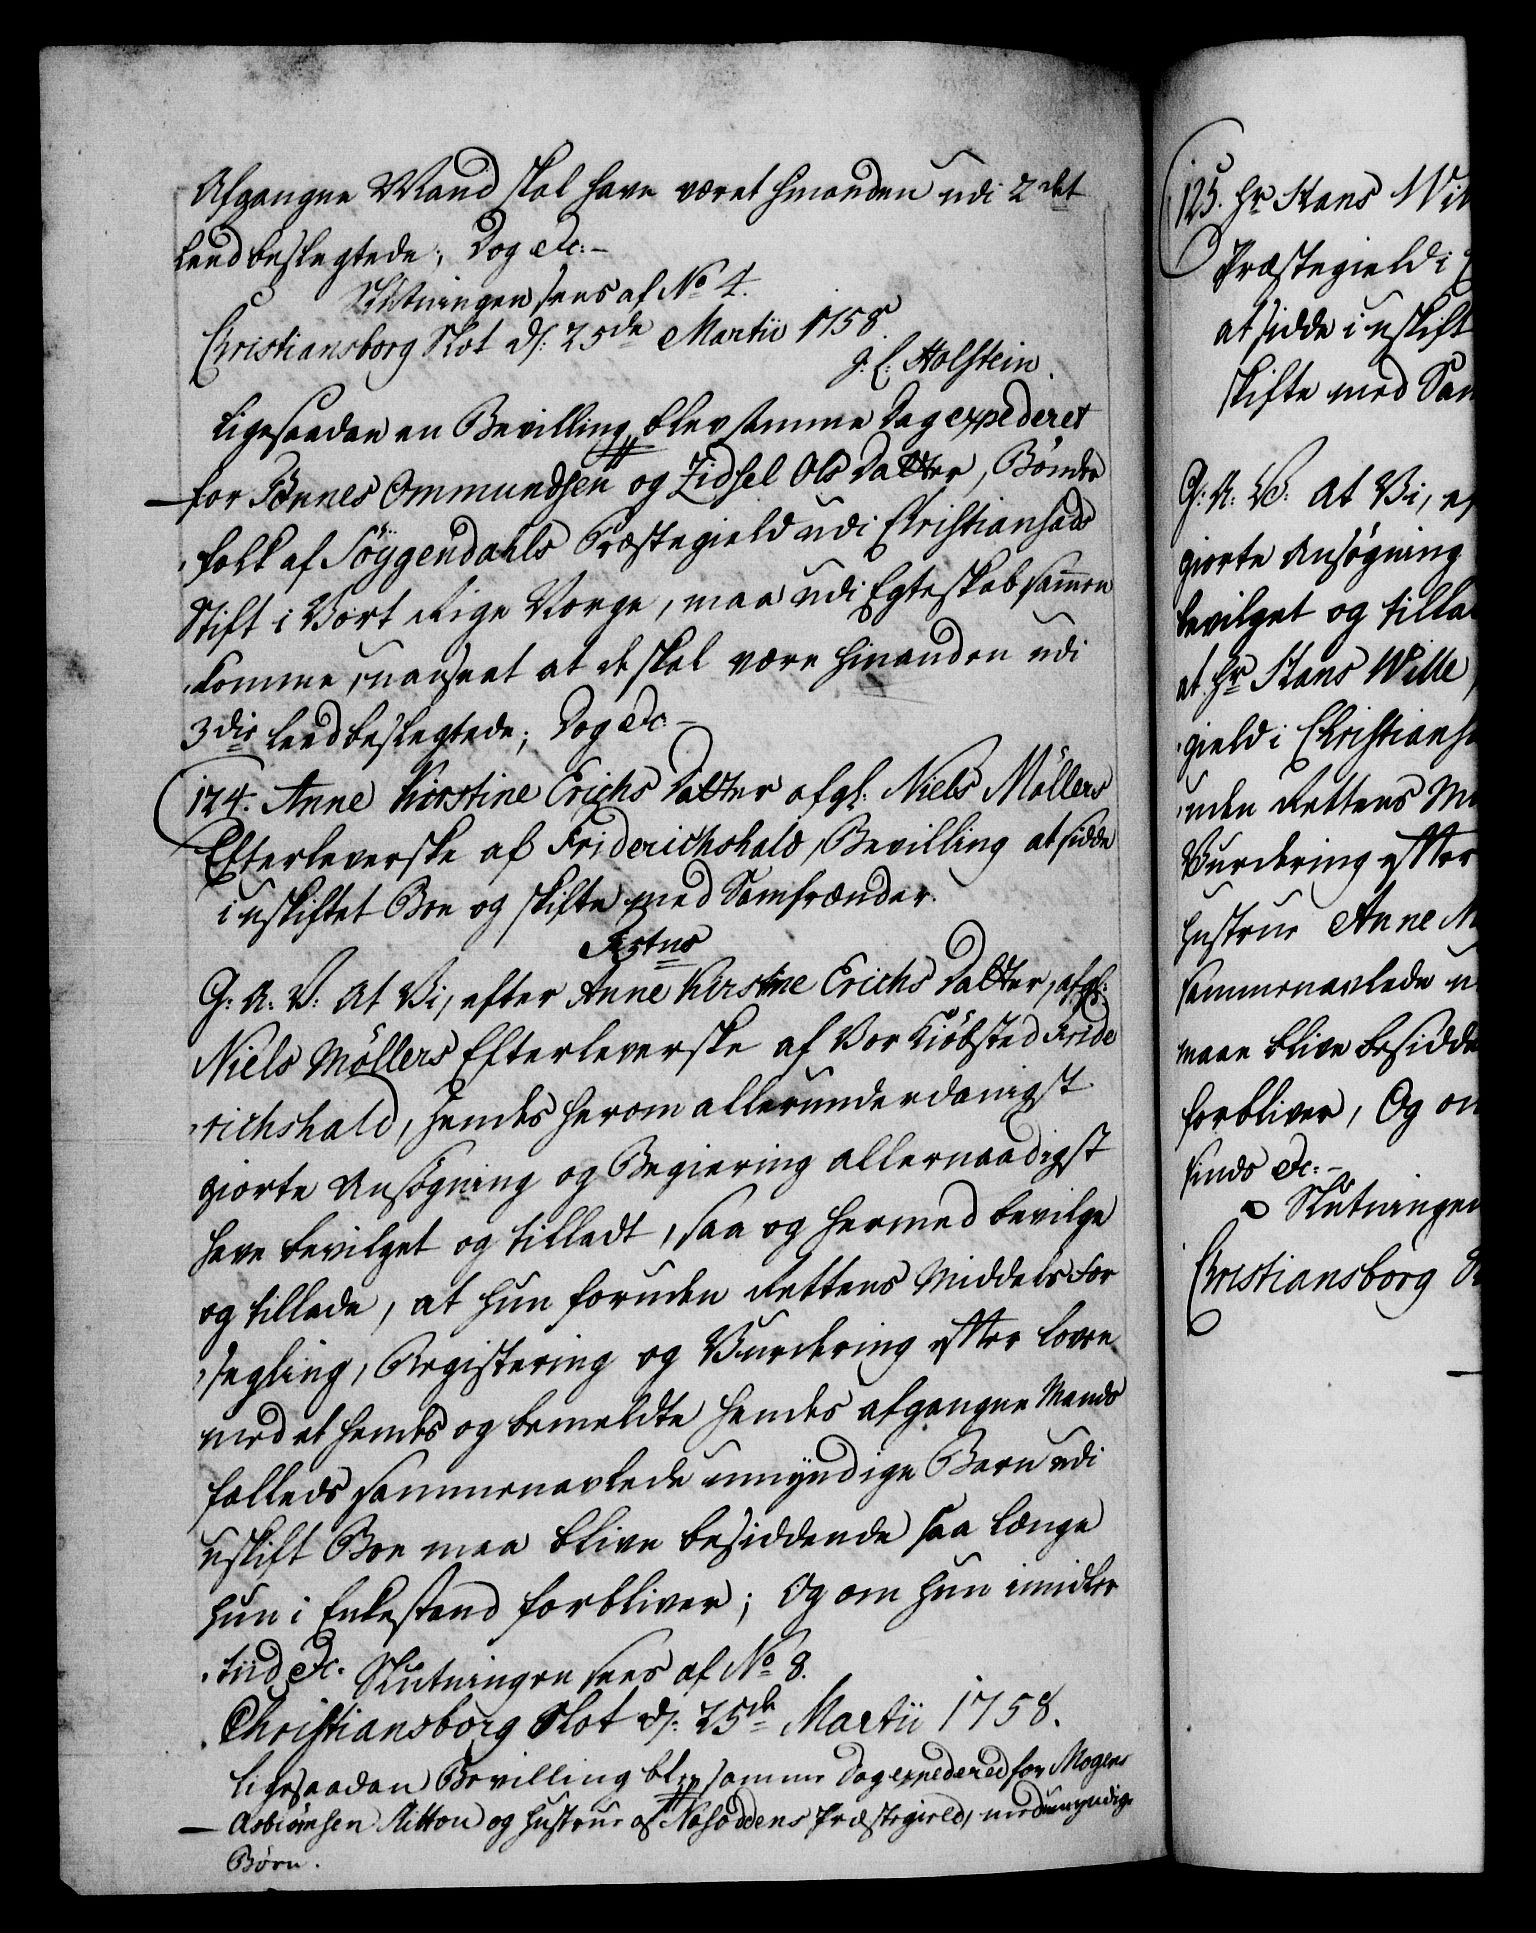 Afgangne Mand skal have været hinanden udi 2det
Leed beslegtede; Dog etc:
Slutningen sees af No 4.
Christiansborg Slot d: 25de Martii 1758.
J: L: Holstein.
Ligesaadan en Bevilling blev samme Dag expederet
for Tönnes Ommundsen og Zidsel Ols Datter, Bönder
folk af Söggendahls Præstegield udi Christiansands
Stift i Vort Rige Norge, maa udi Egteskab sammen
komme, uanseet at de skal være hinanden udi
3die Leed beslegtede; Dog etc
124. Anne Kirstine Erichs Datter afgl: Niels Möllers
Efterleverske af Friderichshald, Bevilling at sidde
i uskiftet Boe og skifte med Samfrænder.
G: A: V: At Vi, efter Anne Kirstine Erichs Datter, afgl:
Niels Möllers Efterleverske af Vor Kiöbsted Fride
richshald, hendes herom allerunderdanigst
giorte Ansögning og Begiering allernaadigst
have bevilget og tilladt, saa og hermed bevilge
og tillade, at hun foruden Rettens Middels For
segling, Registering og Vurdering efter Loven
med et hendes og bemeldte hendes afgangne Mands
falleds sammenavlede umyndige Barn udi
uskift Boe maa blive besiddende saa længe
hun i Enkestand forbliver; Og om hun imidler
tiid etc. Slutningen sees af No 8.
Christiansborg Slot d: 25de Martii 1758.
Ligesaadan Bevilling blev samme Dag expedered for Mogens
Asbiörnsen Ritton og Hustrue af Næsoddens Præstegield, med umyndige
Börn.
125. Hr Hans Wil
Præstegield i
at sidde i uskift
skifte med Sam
G: A: V: At Vi, ef
giorte Ansögning
bevilget og tilla
at Hr Hans Wille,
gield i Christiansa
uden Rettens Mi
Vurdering efter
Hustrue Anne M
sammenavlede u
maae blive besidde
forbliver, Og om
sinds etc:
Slutningen
Christiansborg Sl